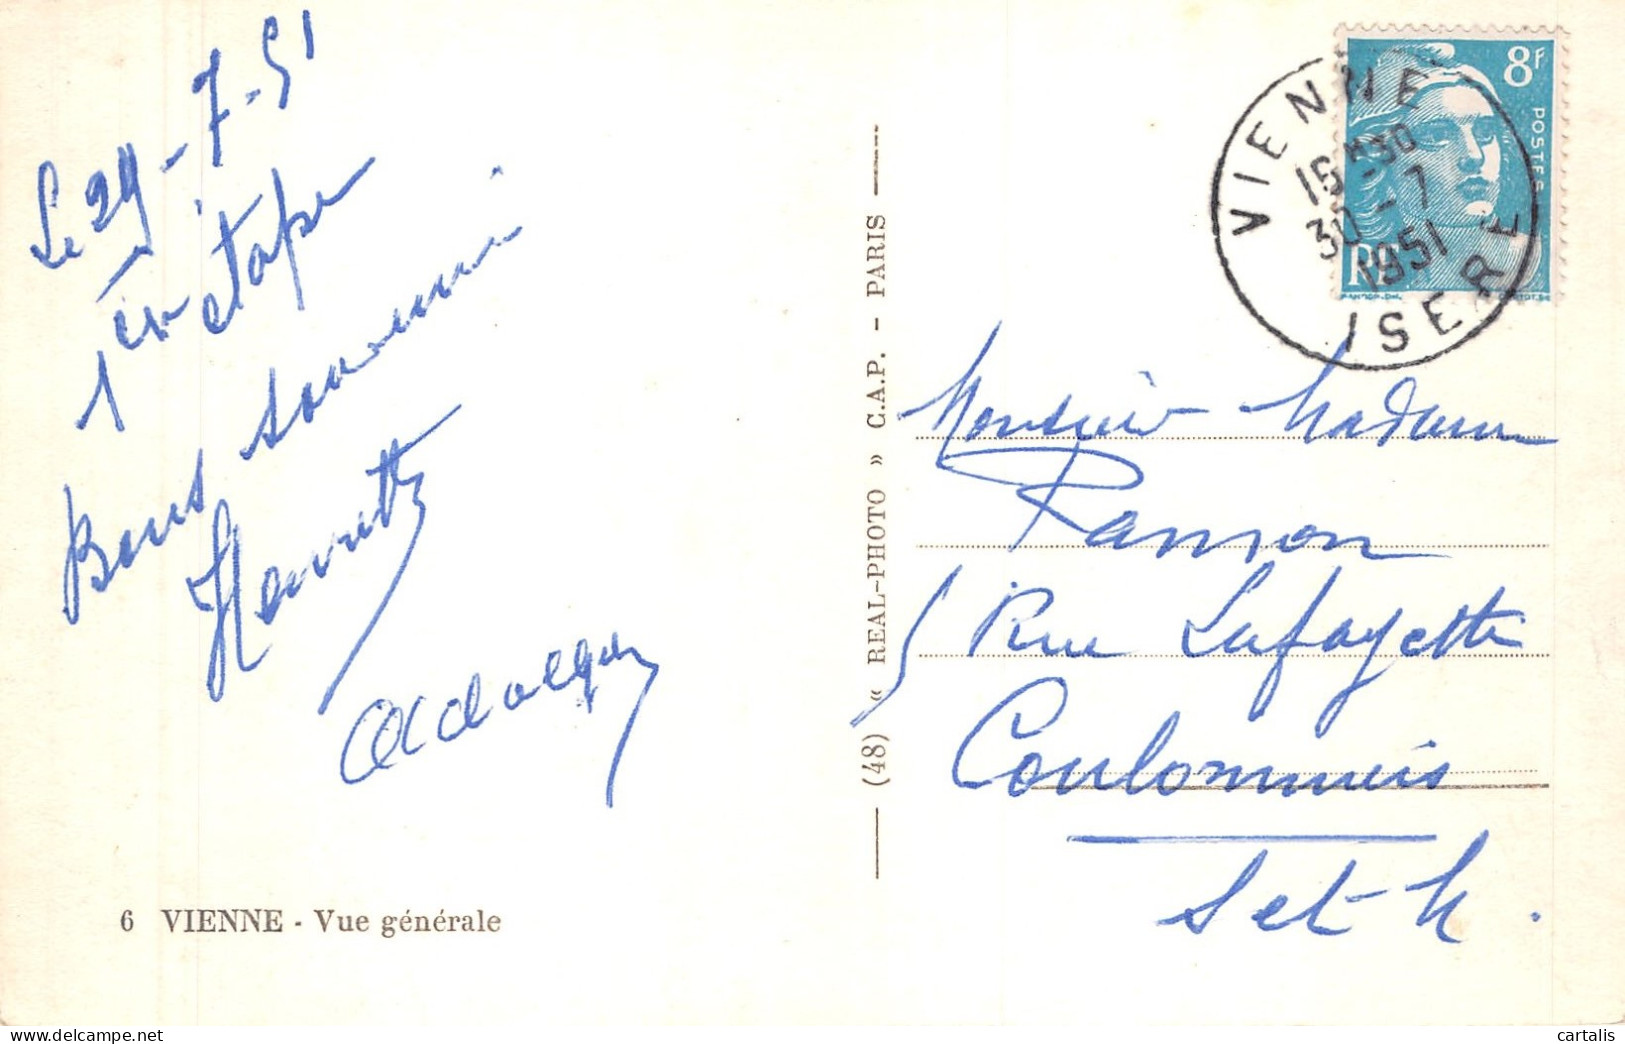 Le 29-7-51
1èr étape
Bons souvenir
Henriette
6 VIENNE - Vue générale
(48) « REAL-PHOTO » C.A.P. - PARIS
8F
POSTES
RF
VIENNE
16 H30
30 -7
1951
ISERE
Monsieur Madame
5 Rue Lafayette
Coulommiers
S et M.
cartalis